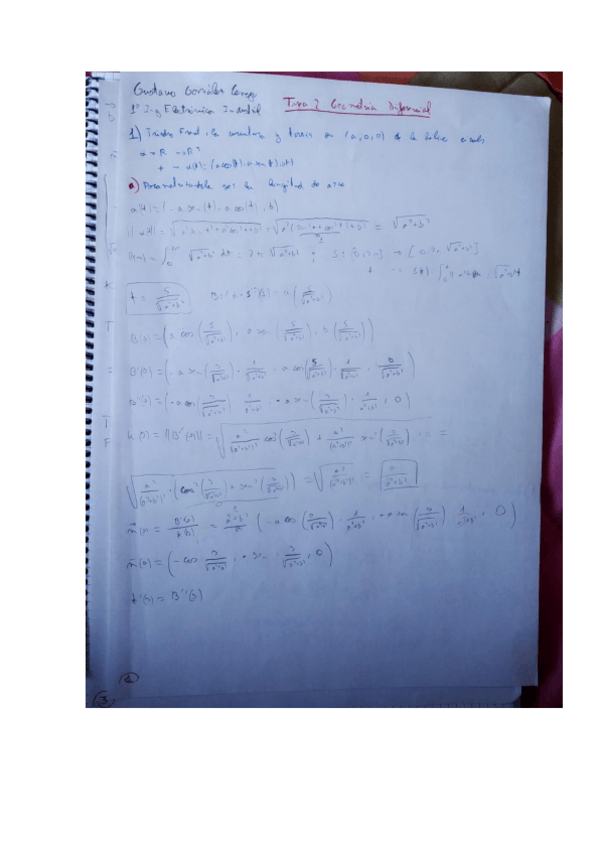 Gustavo González
1º Ing Electrónica Industrial Tema 2 Geometría Diferencial
1) Triedro Frenet, la curvatura y torsión en (a,0,0) de la hélice
α: R → R³
t → α(t) = (a cos(t), a sen(t), bt)
a) Parametrizándola por la longitud de arco
α'(t) = (-a sen(t), a cos(t), b)
||α'(t)|| = √(a² sen² t + a² cos² t + b²) = √(a²(sen² t + cos² t) + b²) = √(a²+b²)
∫₀^2π √(a²+b²) dt = 2π √(a²+b²) ; S: [0,2π] → [0, 2π √(a²+b²)]
t = s/√(a²+b²)
B(s) = (a cos(s/√(a²+b²)), a sen(s/√(a²+b²)), b(s/√(a²+b²)))
B'(s) = (-a sen(s/√(a²+b²)) · 1/√(a²+b²), a cos(s/√(a²+b²)) · 1/√(a²+b²), b/√(a²+b²))
B''(s) = (-a cos(s/√(a²+b²)) · 1/(a²+b²), -a sen(s/√(a²+b²)) · 1/(a²+b²), 0)
k(s) = ||B''(s)|| = √(a²/(a²+b²)² cos²(s/√(a²+b²)) + a²/(a²+b²)² sen²(s/√(a²+b²))) =
√(a²/(a²+b²)² · (cos²(s/√(a²+b²)) + sen²(s/√(a²+b²)))) = √(a²/(a²+b²)²) = a/(a²+b²)
n(s) = B''(s)/k(s) = (a²+b²)/a (-a cos(s/√(a²+b²)) · 1/(a²+b²), -a sen(s/√(a²+b²)) · 1/(a²+b²), 0)
n(s) = (-cos s/√(a²+b²), -sen s/√(a²+b²), 0)
t'(s) = B''(s)